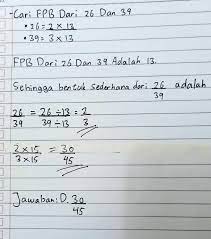 - Cari FPB Dari 26 Dan 39
• 26 = 2 × 13
• 39 = 3 × 13
FPB Dari 26 Dan 39 Adalah 13.
Sehingga bentuk sederhana dari 26/39 adalah
26/39 = 26÷13/39÷13 = 2/3
2×15/3×15 = 30/45
Jawaban: D. 30/45